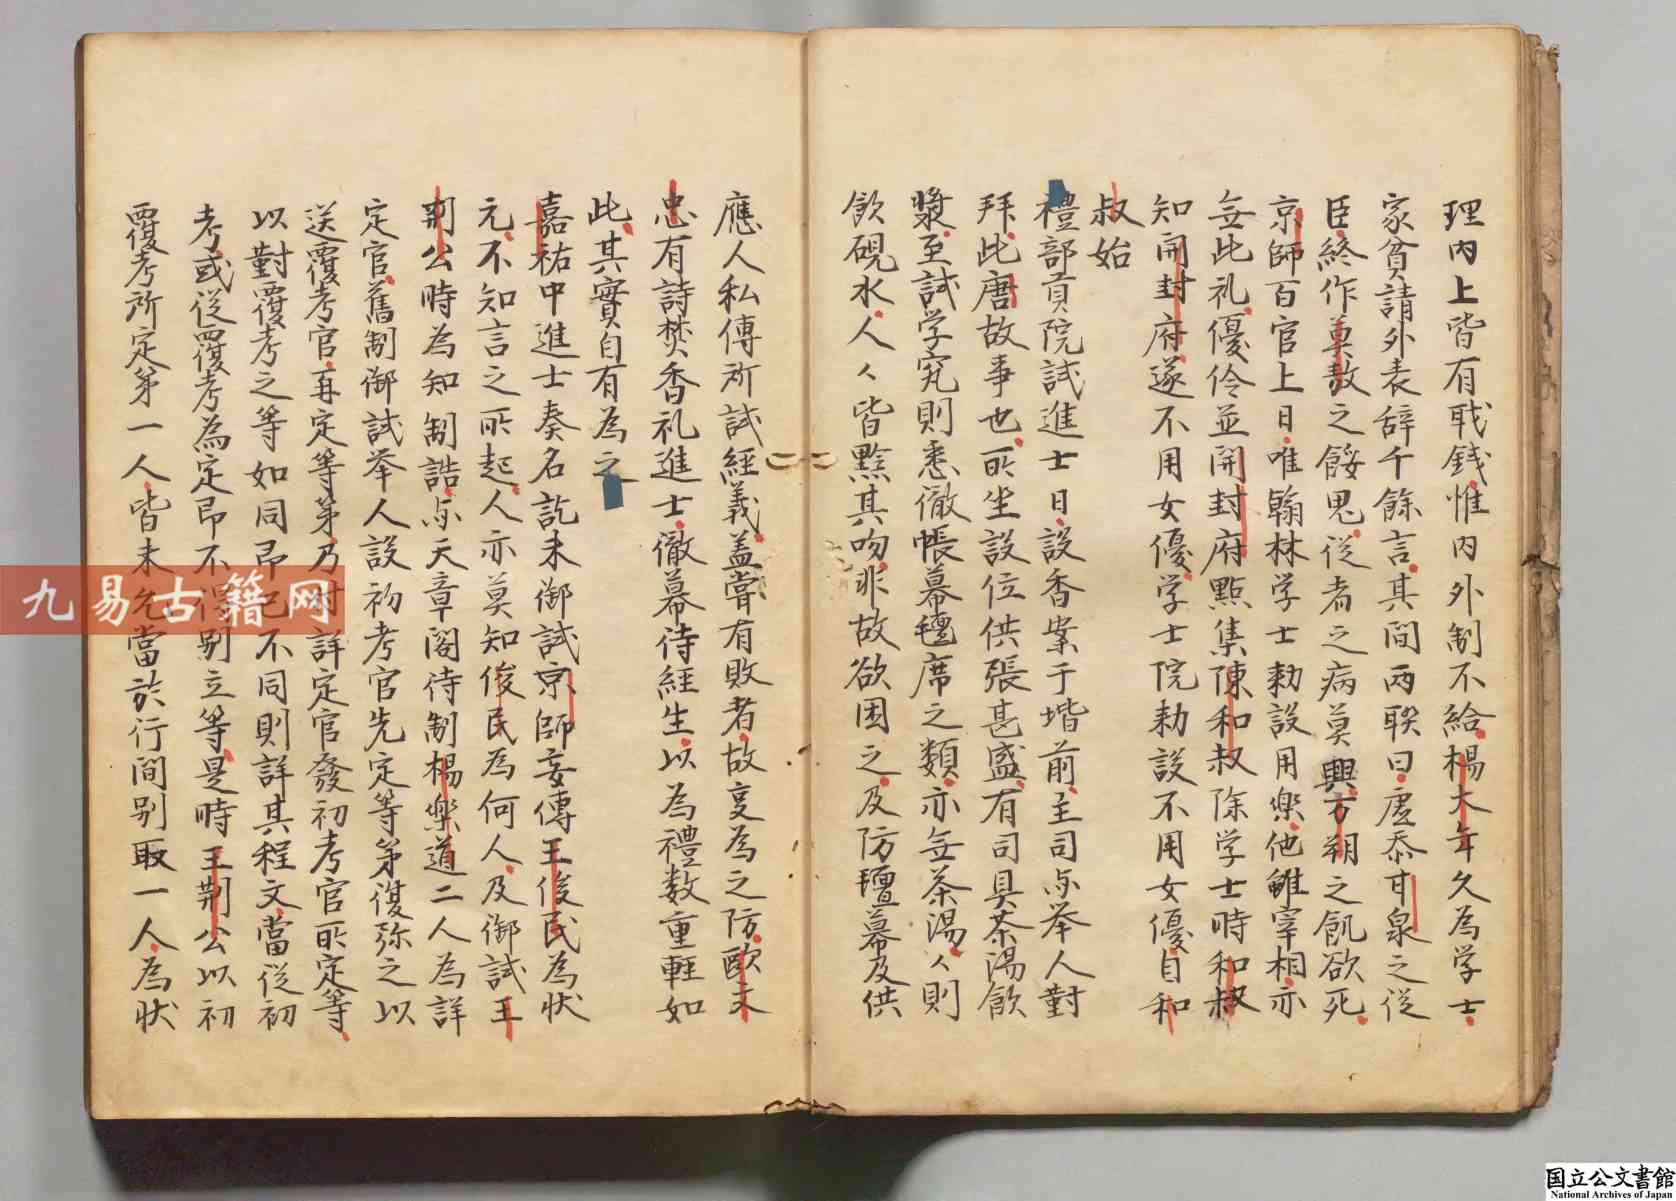 理内上皆有職錢惟内外制不給楊大年久為学士
家貧請外表辞千餘言其間兩聯曰虚忝甘泉之従
臣終作莫敖之餒鬼従者之病莫興方朔之飢欲死
京師百官上日唯翰林学士勅設用樂他雖宰相亦
無此礼優伶並開封府點集陳和叔除学士時和叔
知開封府遂不用女優学士院勅設不用女優自和
叔始
禮部貢院試進士日設香案于堦前主司与挙人對
拜此唐故事也所坐設位供張甚盛有司具茶湯飲
漿至試学究則悉徹帳幕氊席之類亦無茶湯渇則
飲硯水人人皆黔其吻非故欲困之乃防氊幕及供
應人私傳所試經義盖嘗有敗者故㕝為之防歐文
忠有詩焚香礼進士徹幕待經生以為禮数重軽如
此其實自有為之
嘉祐中進士奏名訖未御試京師妄傳王俊民為状
元不知言之所起人亦莫知俊民為何人及御試王
荆公時為知制誥与天章閣待制楊樂道二人為詳
定官舊制御試挙人設初考官先定等第復弥之以
送覆考官再定等第乃付詳定官發初考官所定等
以對覆考之等如同即已不同則詳其程文當従初
考或従覆考為定即不得別立等是時王荆公以初
覆考所定第一人皆未允當於行間別取一人為状
九易古籍网
国立公文書館
National Archives of Japan